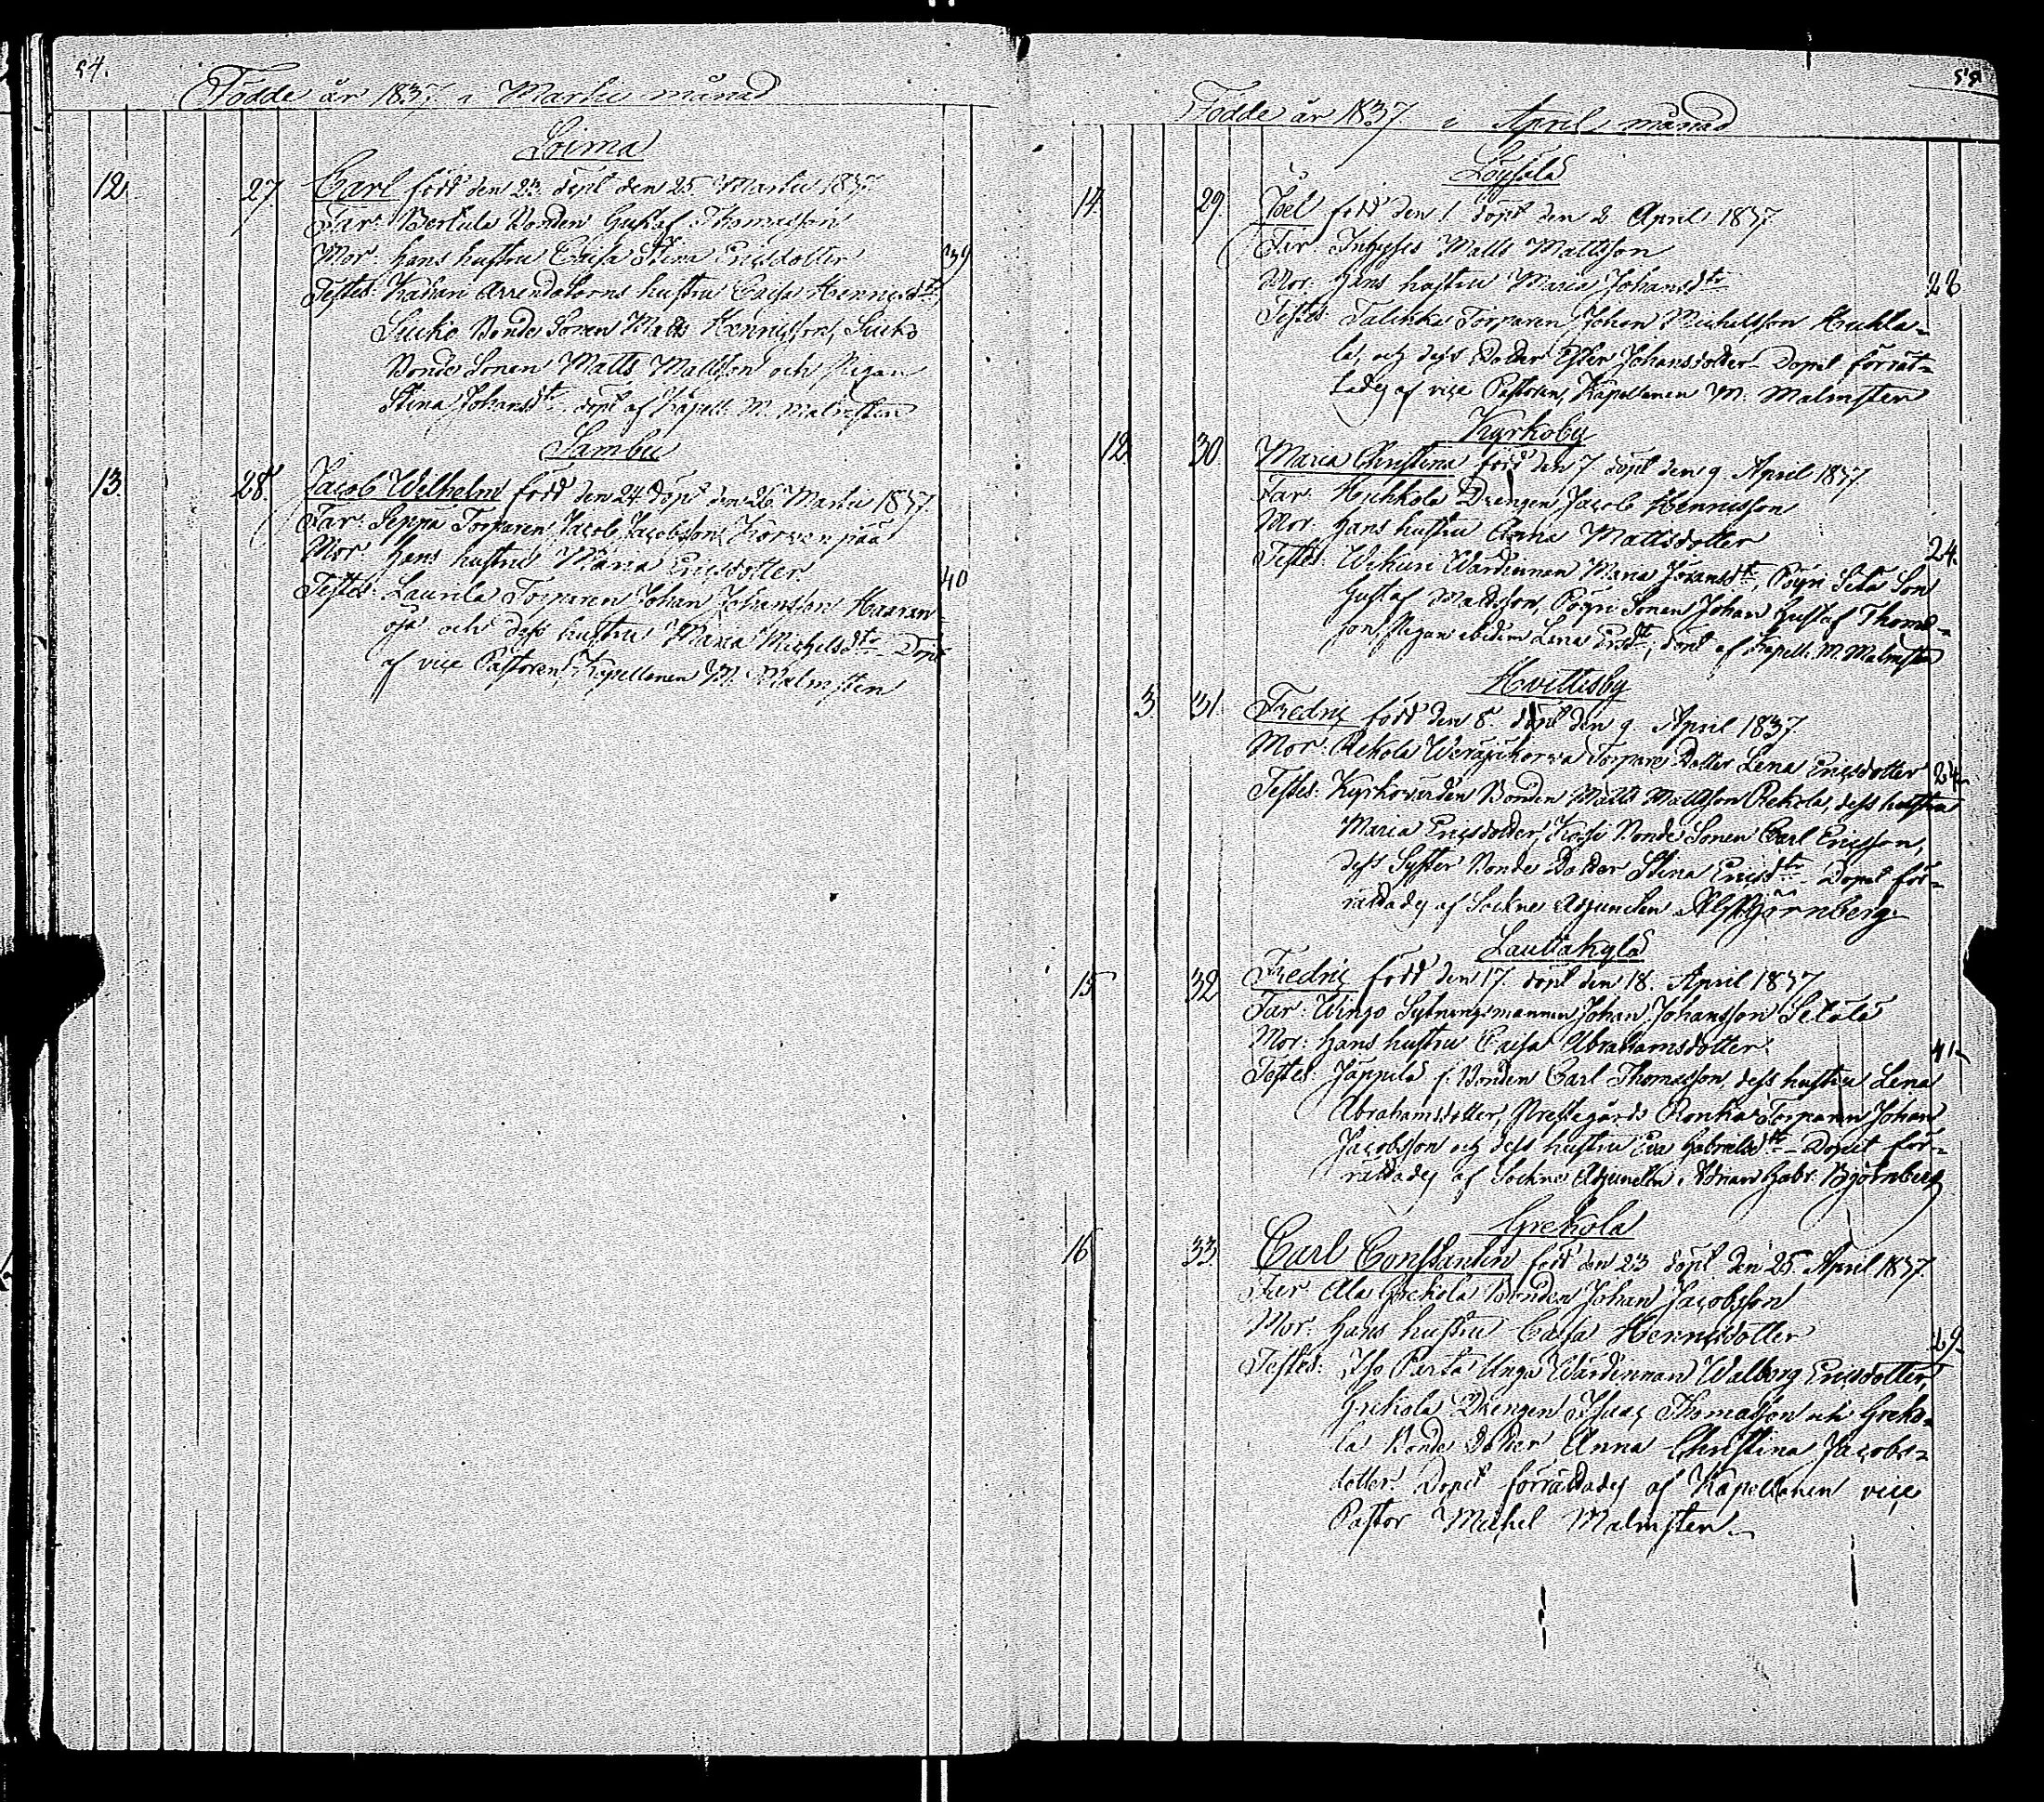 54.
Födde år 1837 i Martii månad
Loima
12 27 Carl född den 23. döpt den 25 Martii 1837.
Far: Bertula Bonden Gustaf Thomasson
Mor: hans hustru Caisa Stina Ericsdotter 39
Testes: Arrendatorns hustru Caisa Henricsdtr,
Sucko Bonde Sonen Matts Henricsson, Sucko
Bonde Sonen Matts Mattsson och Pigan
Stina Johansdtr. döpt af Kapell: M. Malmsten
Sambu
13. 28. Jacob Wilhelm född den 24 döpt den 26 Martii 1837.
Far: Seppä Torparen Jacob Jacobsson Korwenpää
Mor: hans hustru Maria Ericsdotter. 40
Testes: Laurila Torparen Johan Johansson Haaran-
oja och dess hustru Maria Michelsdtr. Döpt
af vice Pastoren, Kapellanen M. Malmsten
55
Födde år 1837 i April månad
14. 29. Joel född den 1. döpt den 2 April 1837.
Far: Matts Mattsson
Mor: hans hustru Maria Johansdtr 28
Testes: Torparen Johan Michelsson Huhta-
la, och dess Dotter Ester Johansdotter. Dopet förrät-
tades af vice Pastoren, Kapellanen M. Malmsten
Kyrkoby
12 30. Maria Christina född den 7. döpt den 9. April 1837
Far: Huhkola Drengen Jacob Henricsson
Mor: hans hustru Anna Mattsdotter 24.
Testes: Wikuri Wärdinnan Maria Johansdtr, Pöyri Son
Gustaf Mattsson, Pöyri Sonen Johan Gustaf Thomas-
son, Pigan ibidem Lena Ersdtr; döpt af Kapell: M. Malmsten
Hvittisby
3. 31. Fredric född den 8. döpt den 9. April 1837.
Mor: Rekola Torpare Dotter Lena Ericsdotter 24
Testes: Kyrkovärden Bonden Matts Mattsson Rekola, dess hustru
Maria Ericsdotter, Bonde Sonen Carl Ericsson,
dess Syster Bonde Dotter Stina Ericsdtr. Dopet för-
rättades af Sockne Adjuncten Björnberg.
Lauttakylä
15 32 Fredric född den 17. döpt den 18. April 1837
Far: Wingo Sytningsmannen Johan Johansson
Mor: hans hustru Caisa Abrahamsdotter. 41
Testes: Jäppilä f. Bonden Carl Thomasson, dess hustru Lena
Abrahamsdotter, Prestegårds Ronka Torparen Johan
Jacobsson och dess hustru Eva Gabrielsdtr. Dopet för-
rättades af Sockne Adjuncten Adrian Gabr. Björnberg
Grekola
16 33. Carl Constantin född den 23 döpt den 25. April 1837.
Far: Ala Grekola Bonden Johan Jacobsson
Mor: hans hustru Caisa Henricsdotter 29
Testes: Iso Perta Unga Wärdinnan Walborg Ericsdotter,
Grekola Drengen Isaac Thomasson och Greko-
la Bonde Dotter Anna Christina Jacobs-
dotter. Dopet förrättades af Kapellanen vice
Pastor Michel Malmsten.